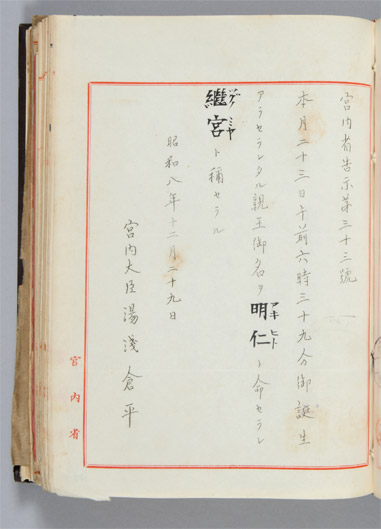 宮内省告示第三十三號
本月二十三日午前六時三十九分御誕生
アラセラレタル親王御名ヲ明仁ト命セラレ
アキ ヒト
繼宮ト稱セラル
ツグノミヤ
昭和八年十二月二十九日
宮内大臣湯淺倉平
宮内省